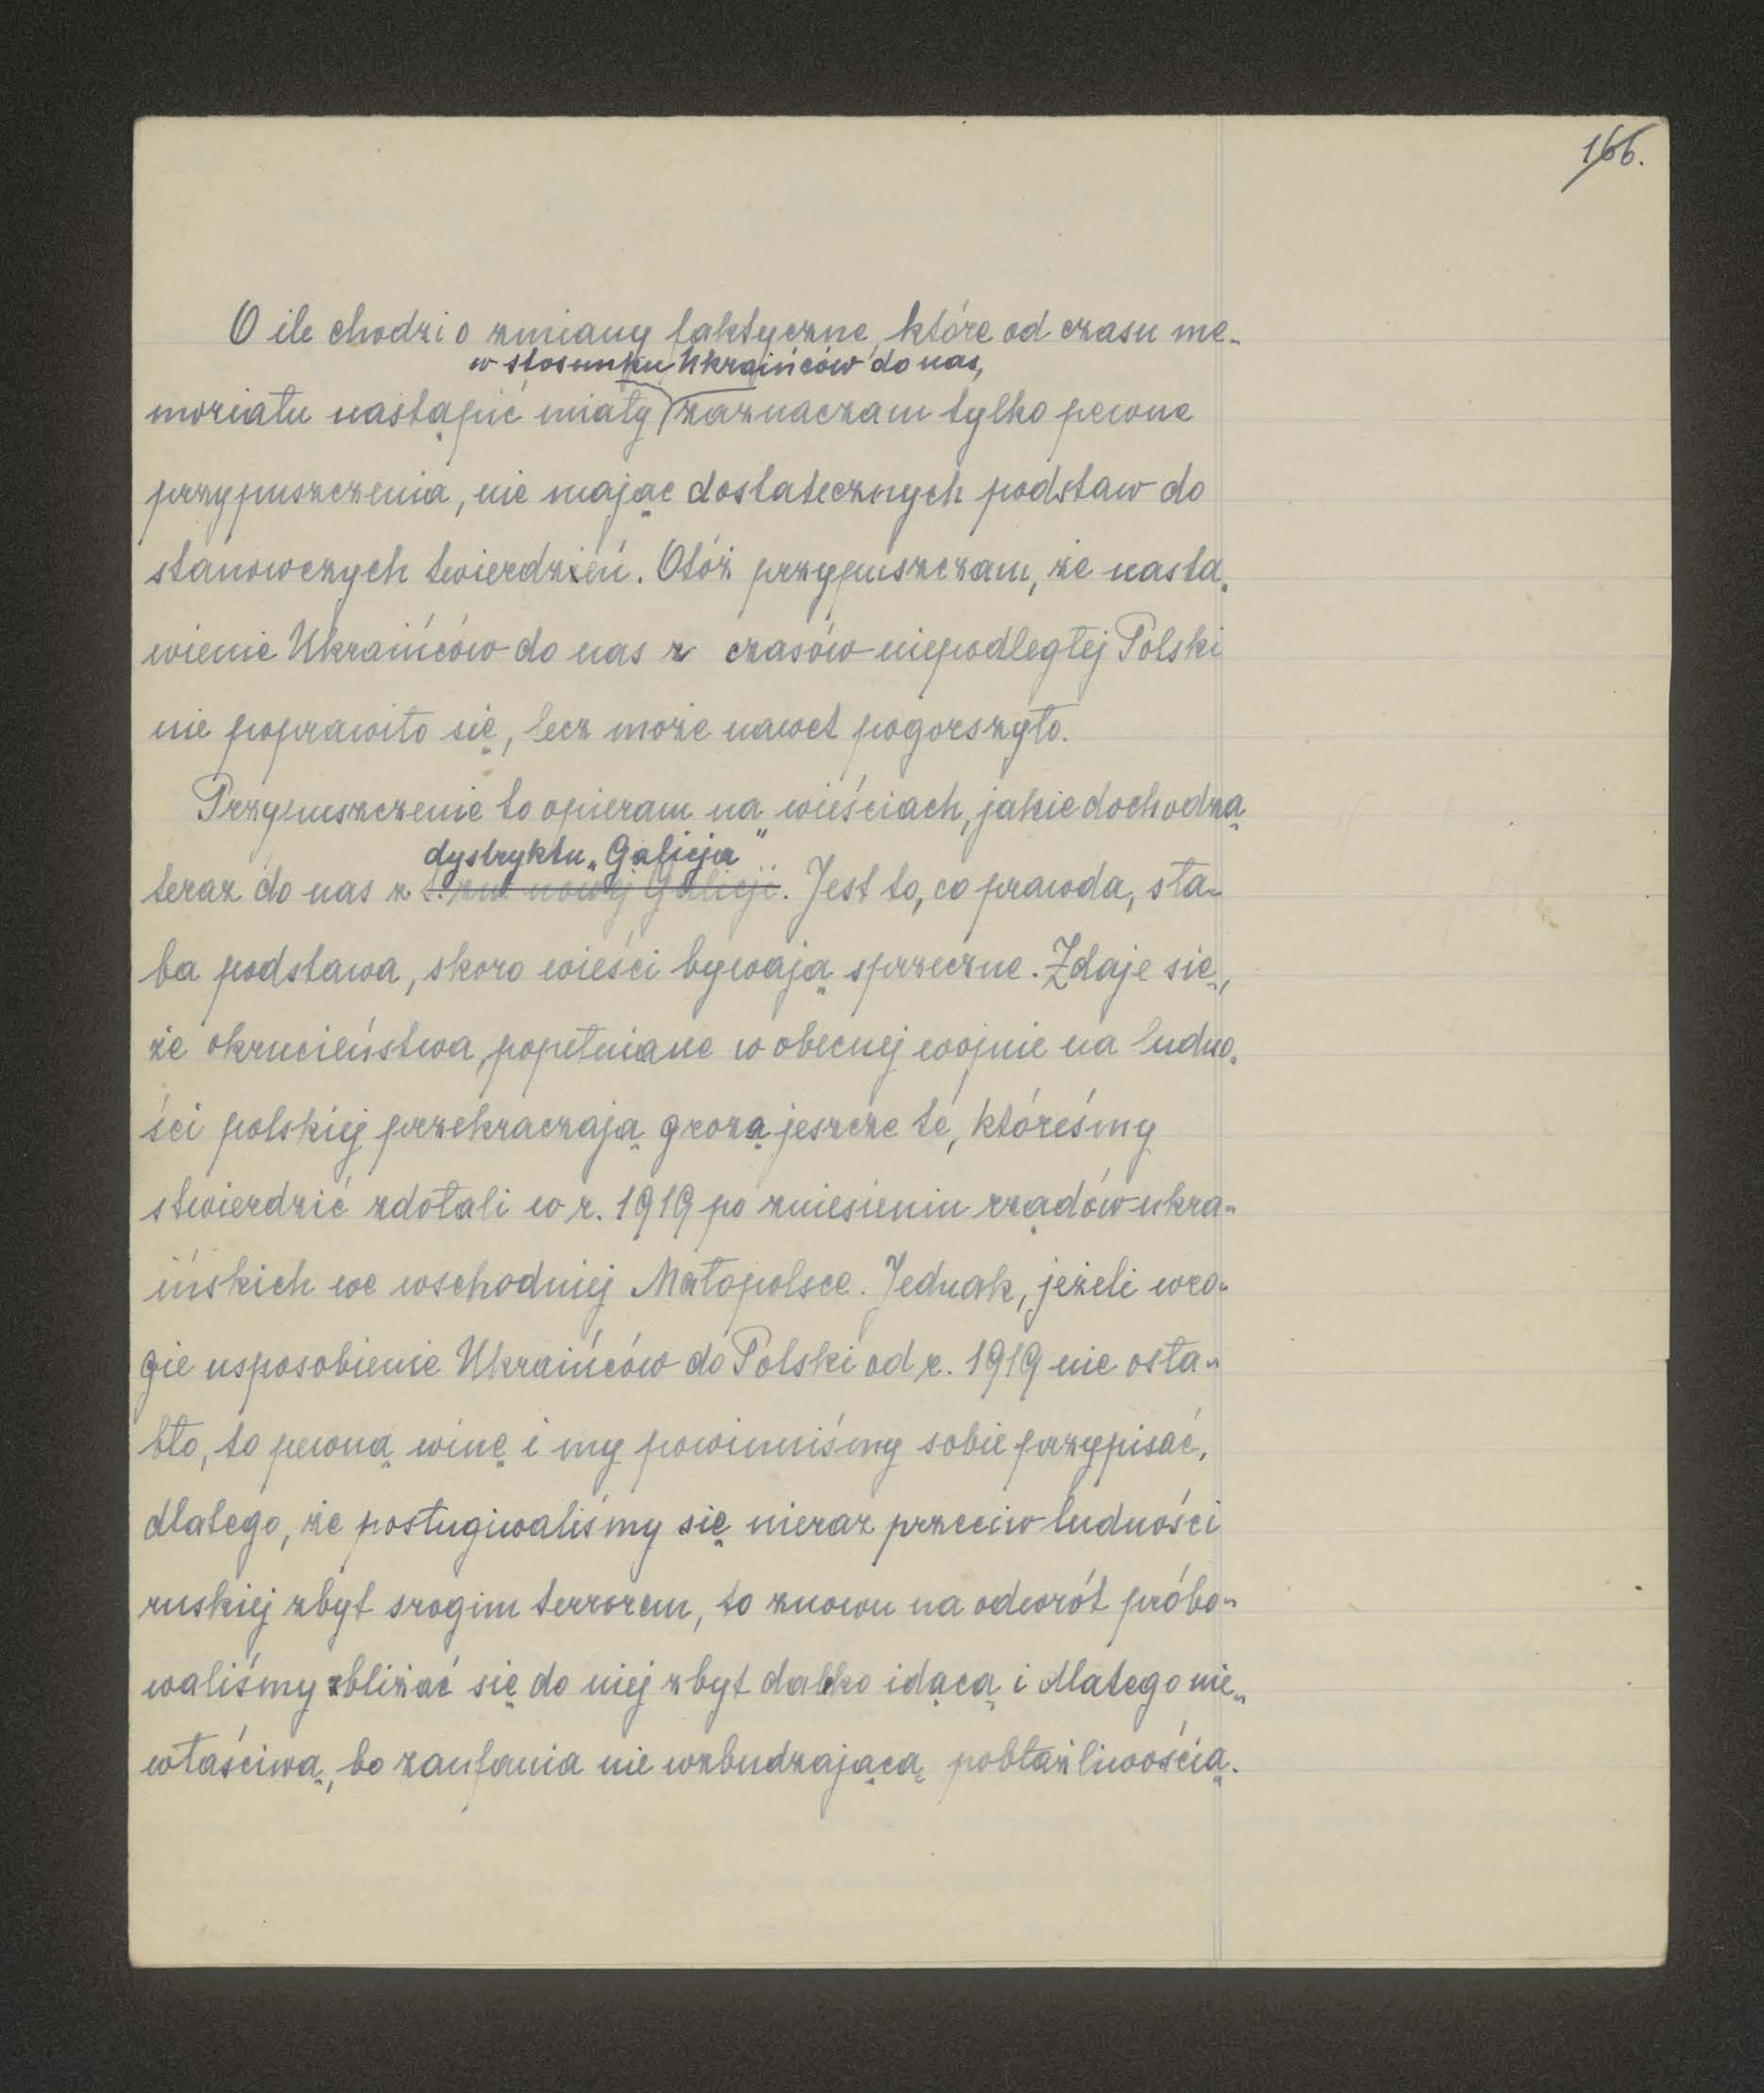 166.
O ile chodzi o zmiany faktyczne, które od czasu me-
w stosunku Ukraińców do nas,
moriału nastąpić miały zaznaczam tylko pewne
przypuszczenia, nie mając dostatecznych podstaw do
stanowczych twierdzeń. Otóż przypuszczam, że nasta-
wienie Ukraińców do nas z czasów niepodległej Polski
nie poprawiło się, lecz może nawet pogorszyło.
Przypuszczenie to opieram na wieściach, jakie dochodzą
dystryktu „Galicja"
teraz do nas z t. zw. nowej Galicji. Jest to, co prawda, sła-
ba podstawa, skoro wieści bywają sprzeczne. Zdaje się,
że okrucieństwa, popełniane w obecnej wojnie na ludno-
ści polskiej przekraczają grozą jeszcze te, któreśmy
stwierdzić zdołali w r. 1919 po zniesieniu rządów ukra-
ińskich we wschodniej Małopolsce. Jednak, jeżeli wro-
gie usposobienie Ukraińców do Polski od r. 1919 nie osła-
bło, to pewną winę i my powinniśmy sobie przypisać,
dlatego, że posługiwaliśmy się nieraz przeciw ludności
ruskiej zbyt srogim terrorem, to znowu na odwrót próbo-
waliśmy zbliżać się do niej zbyt daleko idącą i dlatego nie-
właściwą, bo zaufania nie wzbudzającą pobłażliwością.